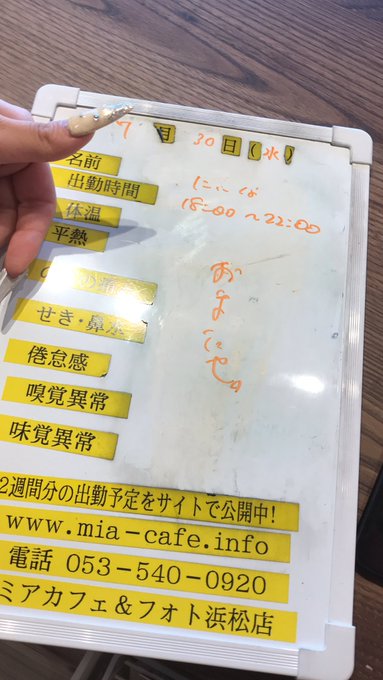 7月30日(水)
名前
出勤時間
18:00～22:00
体温
平熱
せき・鼻水
倦怠感
嗅覚異常
味覚異常
2週間分の出勤予定をサイトで公開中!
www.mia-cafe.info
電話 053-540-0920
ミアカフェ&フォト浜松店